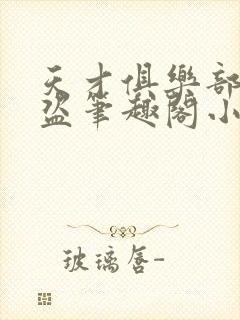 天才俱樂部
盜筆趣閣小
玻璃唇-